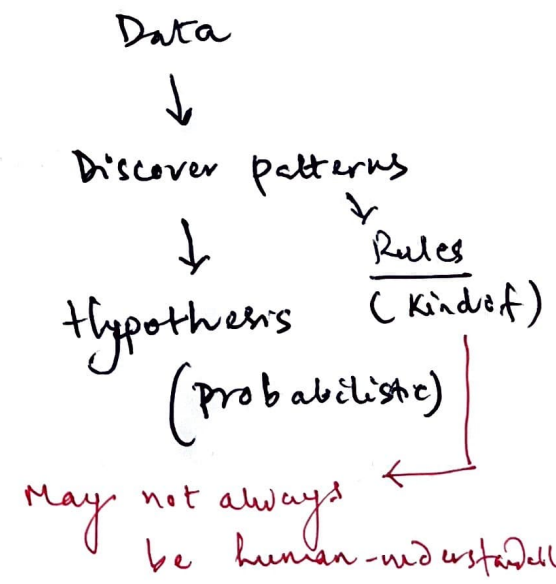 Data
Discover patterns
Rules
(Kind of)
Hypothesis
(probabilistic)
May not always
be human-understandabl